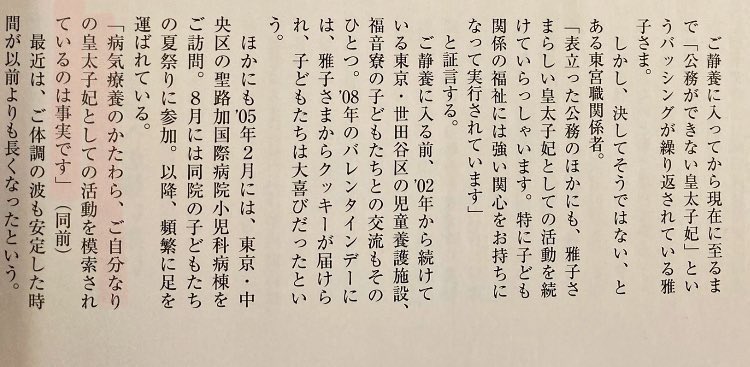 ご静養に入ってから現在に至るま
で「公務ができない皇太子妃」とい
うバッシングが繰り返されている雅
子さま。
しかし、決してそうではない、と
ある東宮職関係者。
「表立った公務のほかにも、雅子さ
まらしい皇太子妃としての活動を続
けていらっしゃいます。特に子ども
関係の福祉には強い関心をお持ちに
なって実行されています」
と証言する。
ご静養に入る前、'02年から続けて
いる東京・世田谷区の児童養護施設、
福音寮の子どもたちとの交流もその
ひとつ。'08年のバレンタインデーに
は、雅子さまからクッキーが届けら
れ、子どもたちは大喜びだったとい
う。
ほかにも'05年2月には、東京・中
央区の聖路加国際病院小児科病棟を
ご訪問。8月には同院の子どもたち
の夏祭りに参加。以降、頻繁に足を
運ばれている。
「病気療養のかたわら、ご自分なり
の皇太子妃としての活動を模索され
ているのは事実です」(同前)
最近は、ご体調の波も安定した時
間が以前よりも長くなったという。